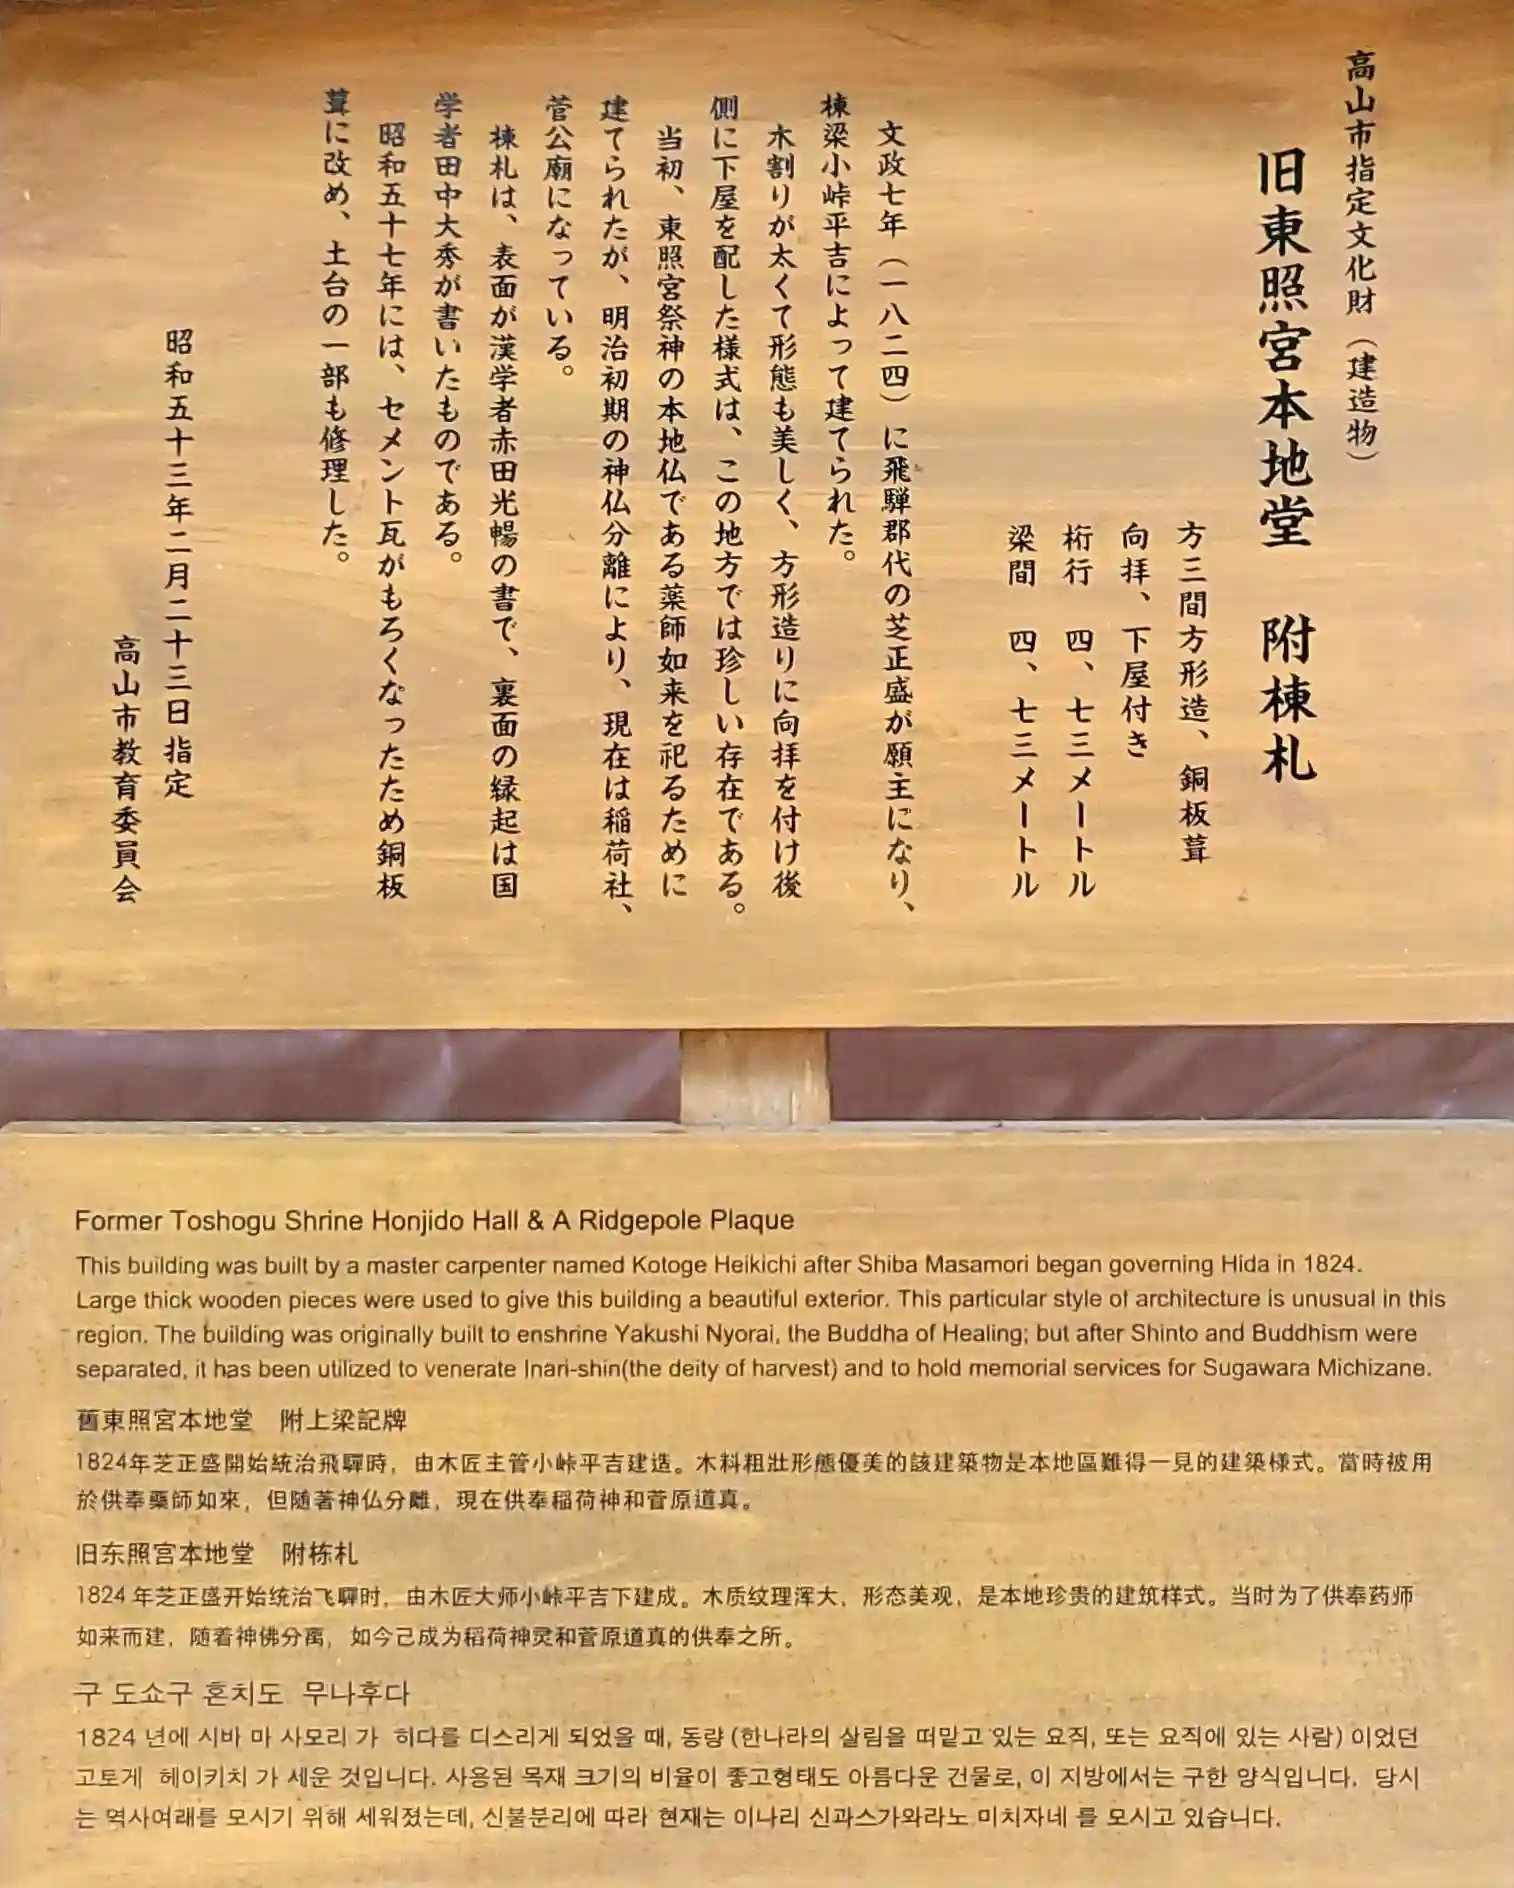 高山市指定文化財（建造物）
旧東照宮本地堂　附棟札
方三間方形造、銅板葺
向拝、下屋付き
桁行　四、七三メートル
梁間　四、七三メートル
文政七年（一八二四）に飛騨郡代の芝正盛が願主になり、
棟梁小峠平吉によって建てられた。
木割りが太くて形態も美しく、方形造りに向拝を付け後
側に下屋を配した様式は、この地方では珍しい存在である。
当初、東照宮祭神の本地仏である薬師如来を祀るために
建てられたが、明治初期の神仏分離により、現在は稲荷社、
菅公廟になっている。
棟札は、表面が漢学者赤田光暢の書で、裏面の縁起は国
学者田中大秀が書いたものである。
昭和五十七年には、セメント瓦がもろくなったため銅板
葺に改め、土台の一部も修理した。
昭和五十三年二月二十三日指定
高山市教育委員会
Former Toshogu Shrine Honjido Hall & A Ridgepole Plaque
This building was built by a master carpenter named Kotoge Heikichi after Shiba Masamori began governing Hida in 1824.
Large thick wooden pieces were used to give this building a beautiful exterior. This particular style of architecture is unusual in this
region. The building was originally built to enshrine Yakushi Nyorai, the Buddha of Healing; but after Shinto and Buddhism were
separated, it has been utilized to venerate Inari-shin(the deity of harvest) and to hold memorial services for Sugawara Michizane.
舊東照宮本地堂　附上梁記牌
1824年芝正盛開始統治飛驒時，由木匠主管小峠平吉建造。木料粗壯形態優美的該建築物是本地區難得一見的建築様式。當時被用
於供奉藥師如來，但随著神仏分離，現在供奉稲荷神和菅原道真。
旧东照宫本地堂　附栋札
1824 年芝正盛开始统治飞驒时，由木匠大师小峠平吉下建成。木质纹理浑大，形态美观，是本地珍贵的建筑样式。当时为了供奉药师
如来而建，随着神佛分离，如今己成为稻荷神灵和菅原道真的供奉之所。
구 도쇼구 혼치도 무나후다
1824 년에 시바 마 사모리 가 히다를 디스리게 되었을 때, 동량 (한나라의 살림을 떠맡고 있는 요직, 또는 요직에 있는 사람) 이었던
고토게 헤이키치 가 세운 것입니다. 사용된 목재 크기의 비율이 좋고형태도 아름다운 건물로, 이 지방에서는 구한 양식입니다. 당시
는 역사여래를 모시기 위해 세워졌는데, 신불분리에 따라 현재는 이나리 신과스가와라노 미치자네 를 모시고 있습니다.